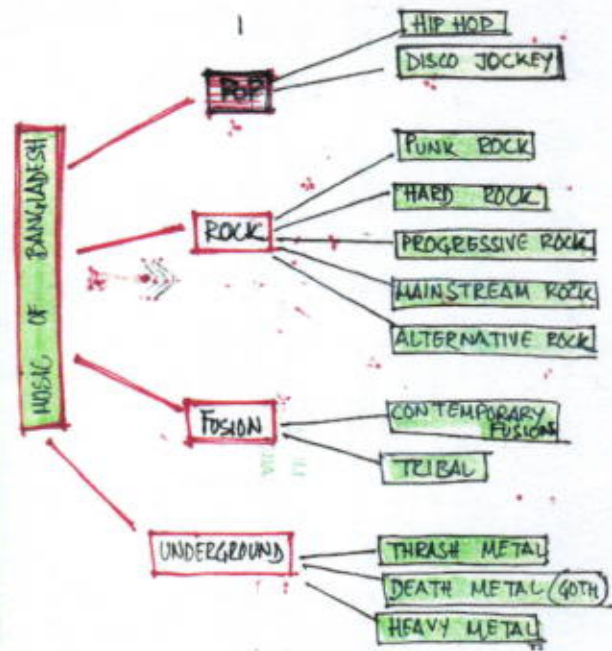 MUSIC OF BANGLADESH
POP
HIP HOP
DISCO JOCKEY
ROCK
PUNK ROCK
HARD ROCK
PROGRESSIVE ROCK
MAINSTREAM ROCK
ALTERNATIVE ROCK
FUSION
CONTEMPORARY
FUSION
TRIBAL
UNDERGROUND
THRASH METAL
DEATH METAL (GOTH)
HEAVY METAL